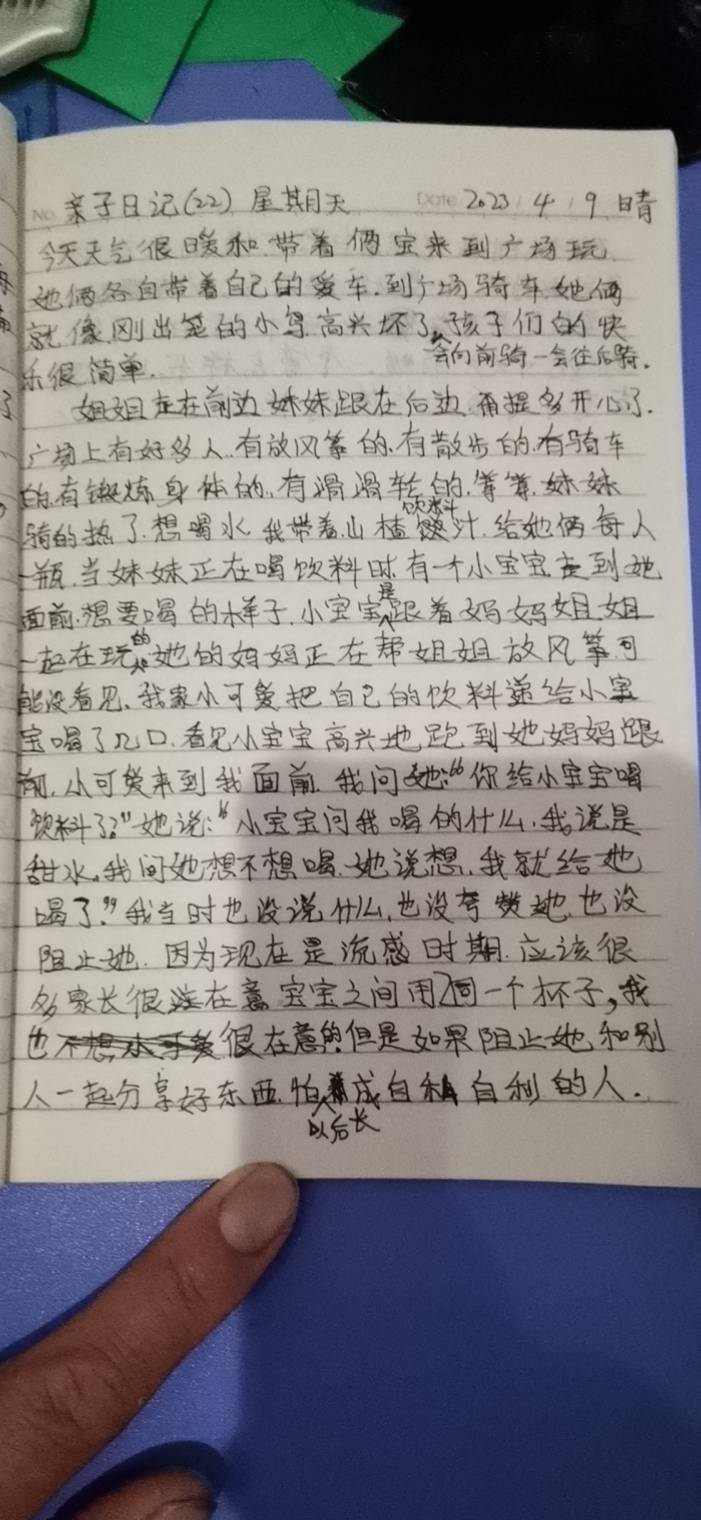 No. 亲子日记(22) 星期天 Date 2023 / 4 / 9 晴
今天天气很暖和.带着俩宝来到广场玩.
她俩各自带着自己的爱车.到广场骑车她俩
就像刚出笼的小鸟.高兴坏了,孩子们的快
会向前骑一会往后骑.
乐很简单.
姐姐走在前边妹妹跟在后边.甭提多开心了.
广场上有好多人.有放风筝的.有散步的.有骑车
的.有锻炼身体的.有滑滑轮的.等等.妹妹
饮料
骑的热了.想喝水.我带着山楂汁.给她俩每人
一瓶.当妹妹正在喝饮料时.有一个小宝宝走到她
是
面前.想要喝的样子.小宝宝跟着妈妈姐姐
的
一起在玩她的妈妈正在帮姐姐放风筝可
能没看见.我家小可爱把自己的饮料递给小宝
宝喝了几口.看见小宝宝高兴地跑到她妈妈跟
前.小可爱来到我面前.我问她:“你给小宝宝喝
饮料了?”她说:“小宝宝问我喝的什么.我说是
甜水.我问她想不想喝.她说想.我就给她
喝了.”我当时也没说什么,也没夸赞她.也没
阻止她.因为现在是流感时期.应该很
多家长很在意宝宝之间用同一个杯子,我
也很在意的但是如果阻止她和别
人一起分享好东西.怕成自私自利的人.
以后长